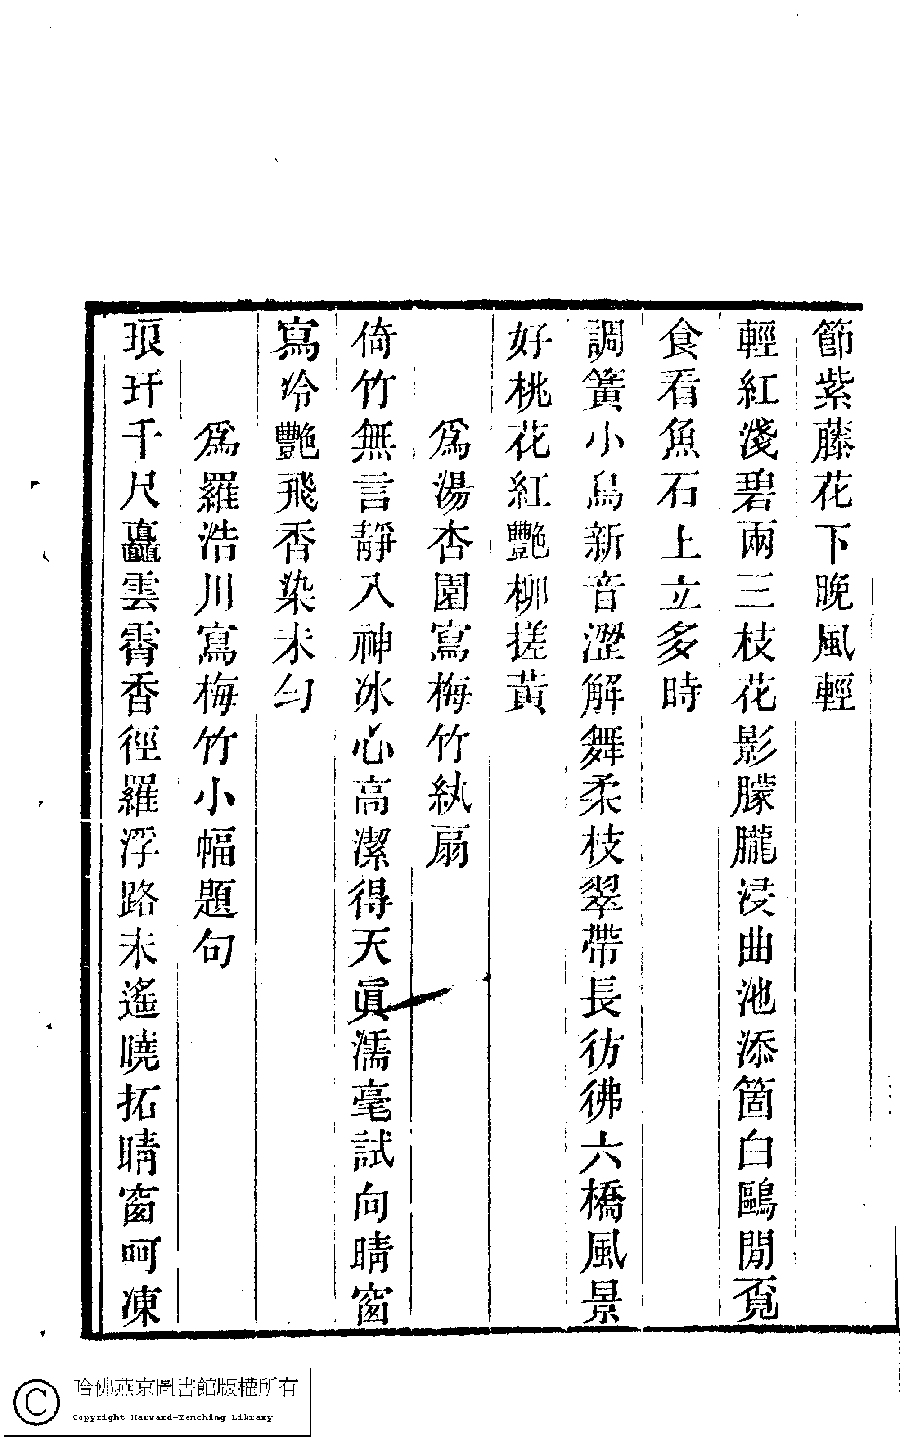 節紫藤花下晚風輕
輕紅淺碧兩三枝花影朦朧浸曲池添箇白鷗閒覓
食看魚石上立多時
調簧小鳥新音澀解舞柔枝翠帶長彷彿六橋風景
好桃花紅艷柳搓黃
爲湯杏園寫梅竹紈扇
倚竹無言靜入神冰心高潔得天眞濡毫試向晴窗
寫冷艷飛香染未勻
爲羅浩川寫梅竹小幅題句
琅玕千尺矗雲霄香徑羅浮路未遙曉拓晴窗呵凍
哈佛燕京圖書館版權所有
Copyright Harvard-Yenching Library